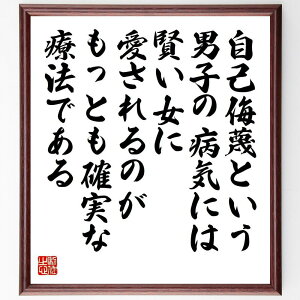 自己侮蔑という
男子の病気には
賢い女に
愛されるのが
もっとも確実な
療法である